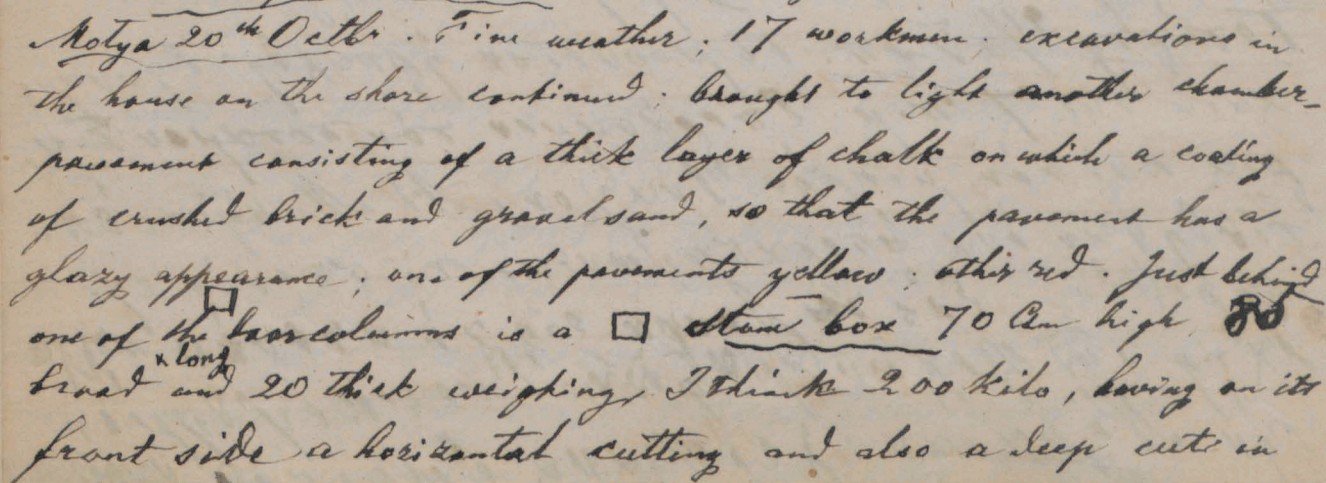 Motya 20th Octbr. Fine weather; 17 workmen; excavations in
the house on the shore continued; brought to light another chamber-
pavement consisting of a thick layer of chalk on which a coating
of crushed brick and gravel sand, so that the pavement has a
glazy appearance; one of the pavements yellow; other red. Just behind
one of the columns is a stone box 70 Cm high 80
broad and x long 20 thick weighing, I think 200 kilo, having on its
front side a horizontal cutting and also a deep cut in